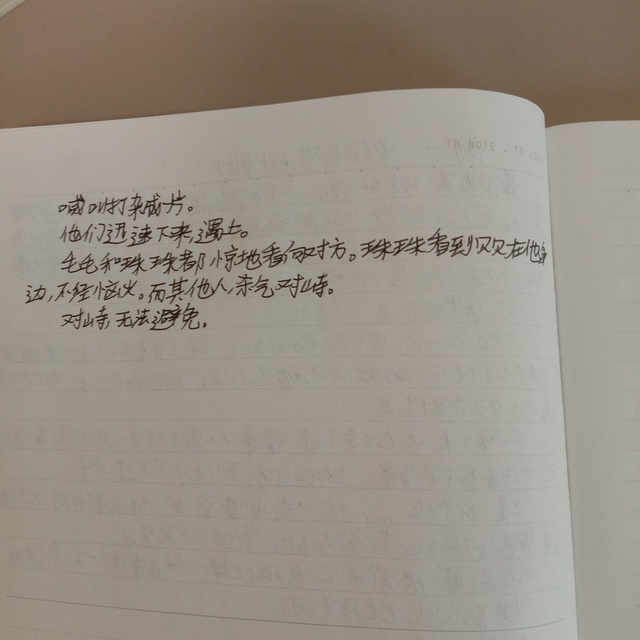 TO NOTE , TO
喊叫打杀成片。
他们迅速下来,遇上。
毛毛和珠珠都惊地看向对方。珠珠看到贝贝在他身
边,不经恼火。而其他人,杀气对峙。
对峙,无法避免。